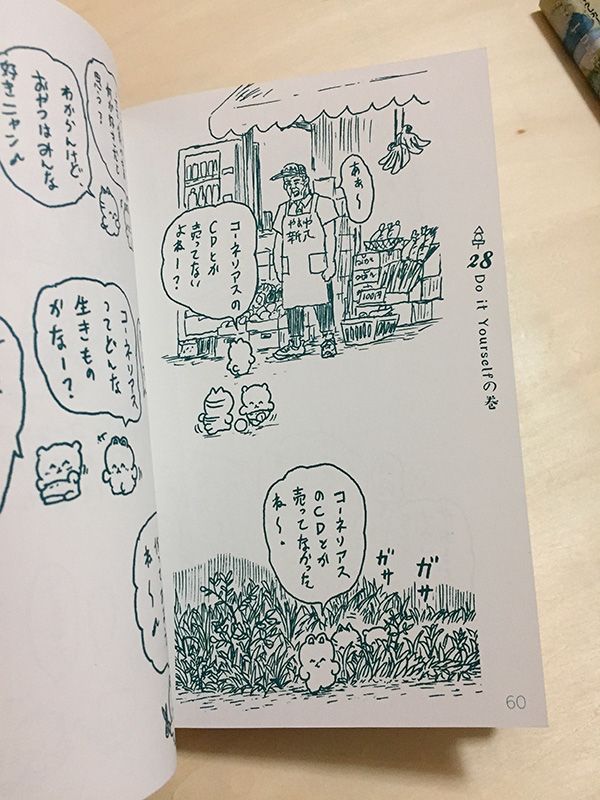 28 Do it Yourselfの巻
あぁ〜
コーネリアスの
CDとか
売ってない
よねー？
やおや
100円
ガサ
ガサ
コーネリアス
のCDとか
売ってなかった
ね〜。
60
思う？
わからんけど、
おやつはみんな
好きニャン♪
コーネリアス
ってどんな
生きもの
かなー？